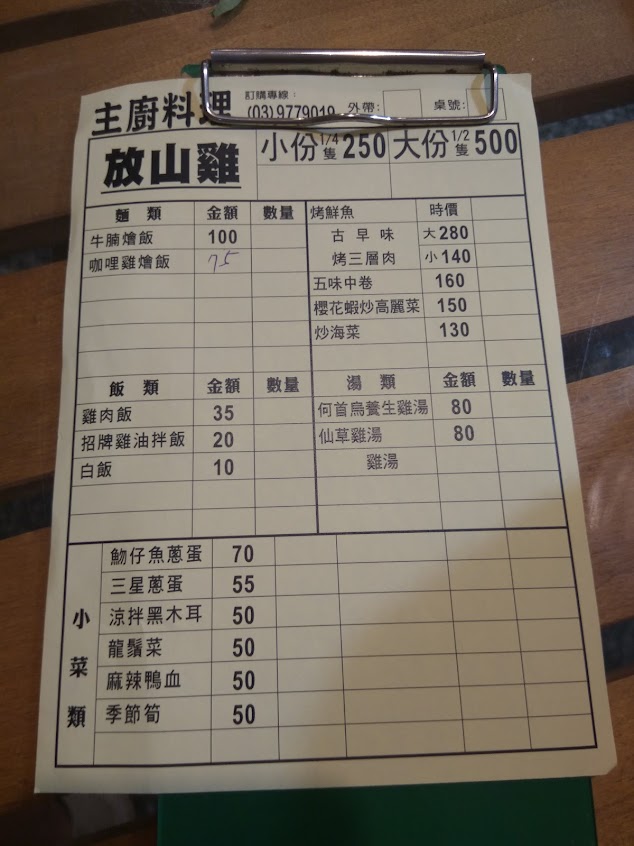 主廚料理 訂購專線: (03)9779019 外帶: 桌號:
放山雞 小份 1/4隻 250 大份 1/2隻 500
麵類 金額 數量
牛腩燴飯 100
咖哩雞燴飯 75
烤鮮魚 時價
古早味 大280
烤三層肉 小140
五味中卷 160
櫻花蝦炒高麗菜 150
炒海菜 130
飯類 金額 數量
雞肉飯 35
招牌雞油拌飯 20
白飯 10
湯類 金額 數量
何首烏養生雞湯 80
仙草雞湯 80
雞湯
小菜類
魩仔魚蔥蛋 70
三星蔥蛋 55
涼拌黑木耳 50
龍鬚菜 50
麻辣鴨血 50
季節筍 50